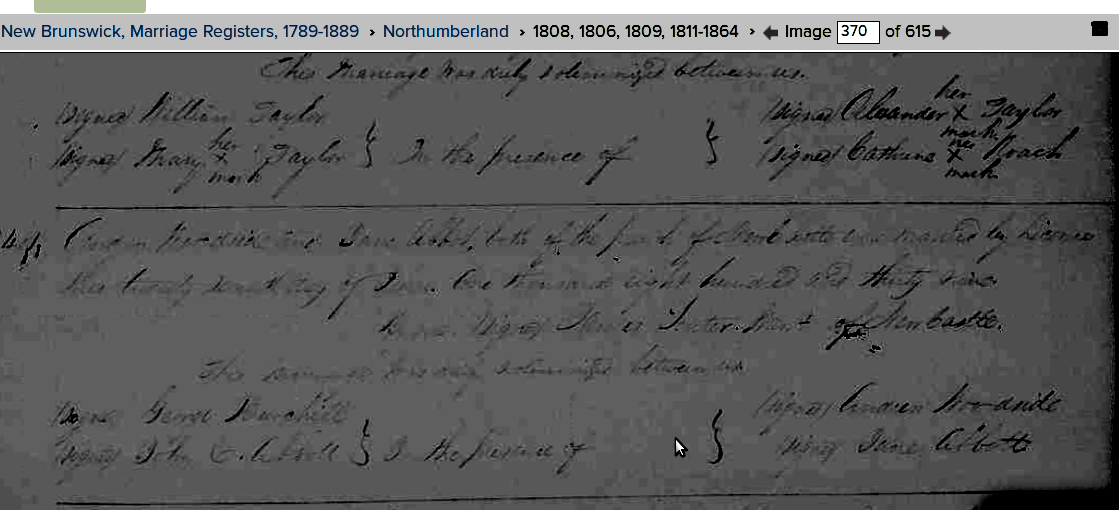 New Brunswick, Marriage Registers, 1789-1889 › Northumberland › 1808, 1806, 1809, 1811-1864 › Image 370 of 615
This Marriage was duly solemnized between us.
Signed William Taylor
Signed Mary her X mark Taylor } In the presence of }
Signed Alexander her X mark Taylor
Signed Catherine her X mark Roach
Andrew Woodside and Jane Abbot, both of the parish of were married by Licence
this twenty day of June One thousand eight hundred and thirty nine
Signed Souter of Newcastle.
This marriage was duly solemnized between us
Signed George Burchill
Signed John Abbott } In the presence of }
(Signed) Andrew Woodside
Signed Jane Abbott